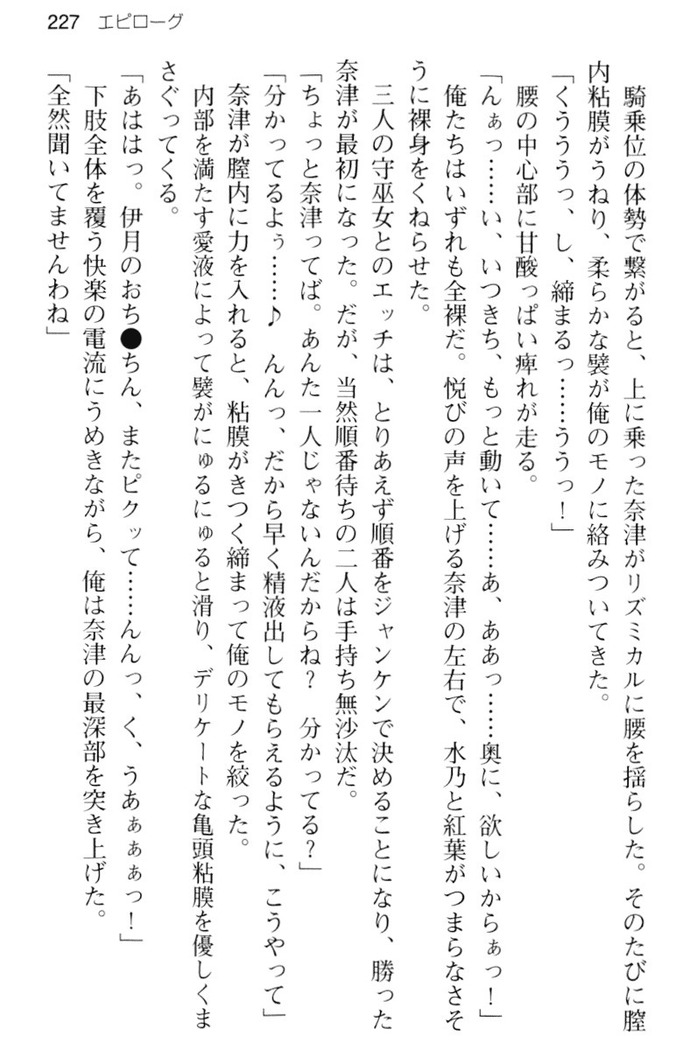 227 エピローグ
騎乗位の体勢で繋がると、上に乗った奈津がリズミカルに腰を揺らした。そのたびに膣
内粘膜がうねり、柔らかな襞が俺のモノに絡みついてきた。
「くうううっ、し、締まるっ……ううっ！」
腰の中心部に甘酸っぱい痺れが走る。
「んぁっ……い、いつきち、もっと動いて……あ、ああっ……奥に、欲しいからぁっ！」
俺たちはいずれも全裸だ。悦びの声を上げる奈津の左右で、水乃と紅葉がつまらなさそ
うに裸身をくねらせた。
三人の守巫女とのエッチは、とりあえず順番をジャンケンで決めることになり、勝った
奈津が最初になった。だが、当然順番待ちの二人は手持ち無沙汰だ。
「ちょっと奈津ってば。あんた一人じゃないんだからね？　分かってる？」
「分かってるよぅ……♪　んんっ、だから早く精液出してもらえるように、こうやって」
奈津が膣内に力を入れると、粘膜がきつく締まって俺のモノを絞った。
内部を満たす愛液によって襞がにゅるにゅると滑り、デリケートな亀頭粘膜を優しくま
さぐってくる。
「あははっ。伊月のおち●ちん、またピクッて……んんっ、く、うあぁぁぁっ！」
下肢全体を覆う快楽の電流にうめきながら、俺は奈津の最深部を突き上げた。
「全然聞いてませんわね」